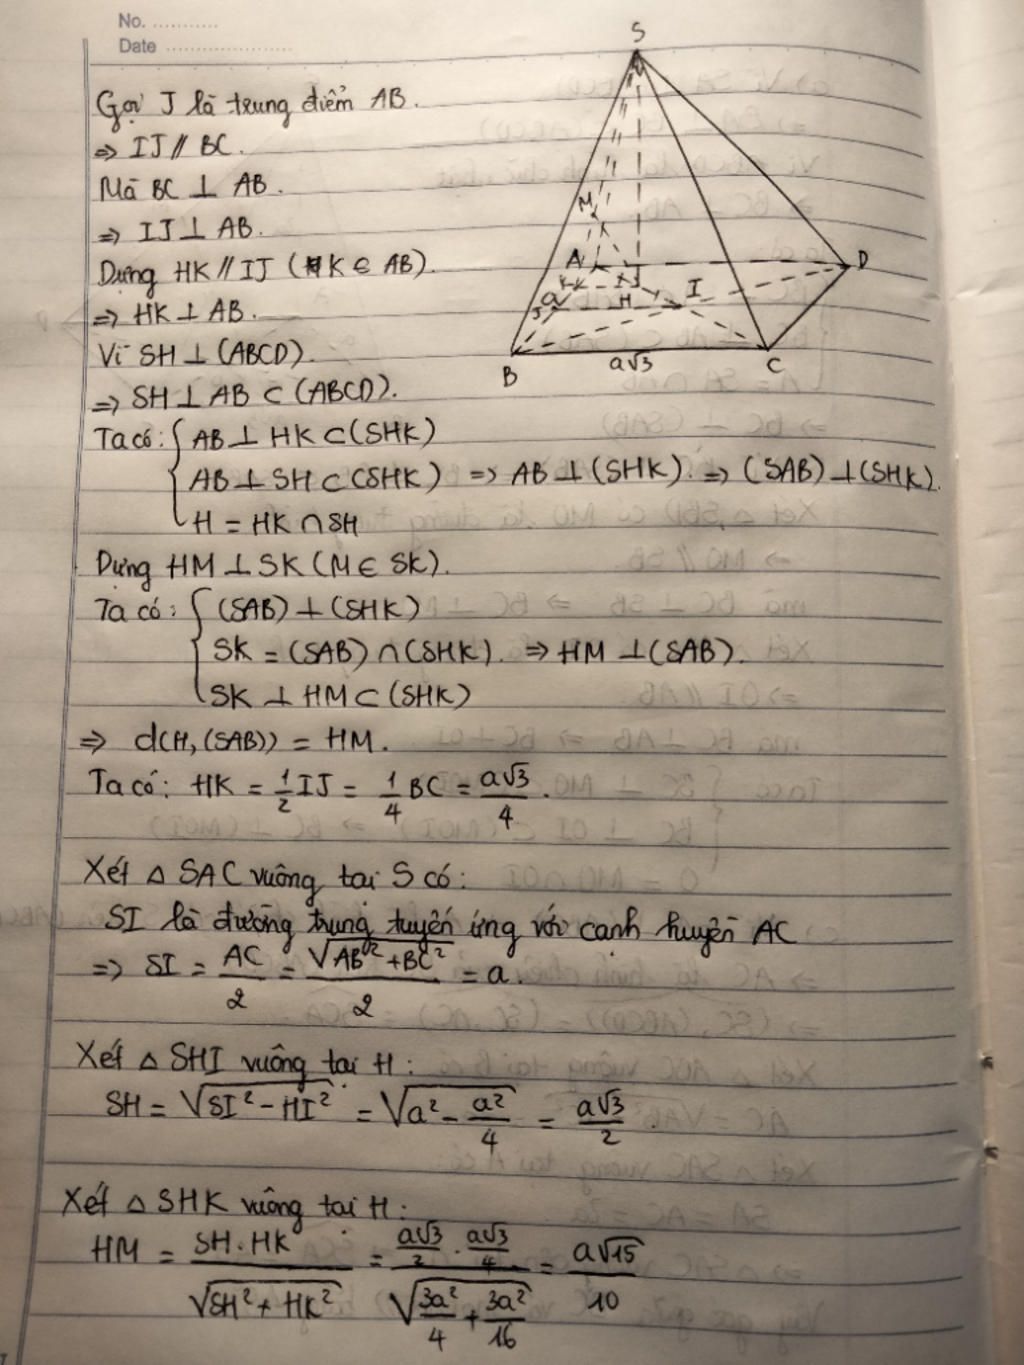 No. ...........
Date .....................
Gọi J là trung điểm AB.
⇒ IJ // BC.
Mà BC ⊥ AB.
⇒ IJ ⊥ AB.
Dựng HK // IJ (K ∈ AB).
⇒ HK ⊥ AB.
Vì SH ⊥ (ABCD).
⇒ SH ⊥ AB ⊂ (ABCD).
Ta có: { AB ⊥ HK ⊂ (SHK)
AB ⊥ SH ⊂ (SHK) ⇒ AB ⊥ (SHK). ⇒ (SAB) ⊥ (SHK).
H = HK ∩ SH
Dựng HM ⊥ SK (M ∈ SK).
Ta có: { (SAB) ⊥ (SHK)
SK = (SAB) ∩ (SHK). ⇒ HM ⊥ (SAB).
SK ⊥ HM ⊂ (SHK)
⇒ d(H, (SAB)) = HM.
Ta có: HK = 1/2 IJ = 1/4 BC = a√3/4.
Xét △ SAC vuông tại S có:
SI là đường trung tuyến ứng với cạnh huyền AC
⇒ SI = AC/2 = √(AB² + BC²)/2 = a.
Xét △ SHI vuông tại H:
SH = √(SI² - HI²) = √(a² - a²/4) = a√3/2.
Xét △ SHK vuông tại H:
HM = SH.HK/√(SH² + HK²) = (a√3/2 . a√3/4)/√(3a²/4 + 3a²/16) = a√15/10
S
M
A
D
K
a
J
H
I
B
a√3
C